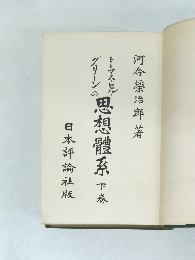 河合榮治郎 著
トーマス・ヒル・
グリーンの 思想體系 下卷
日本評論社版